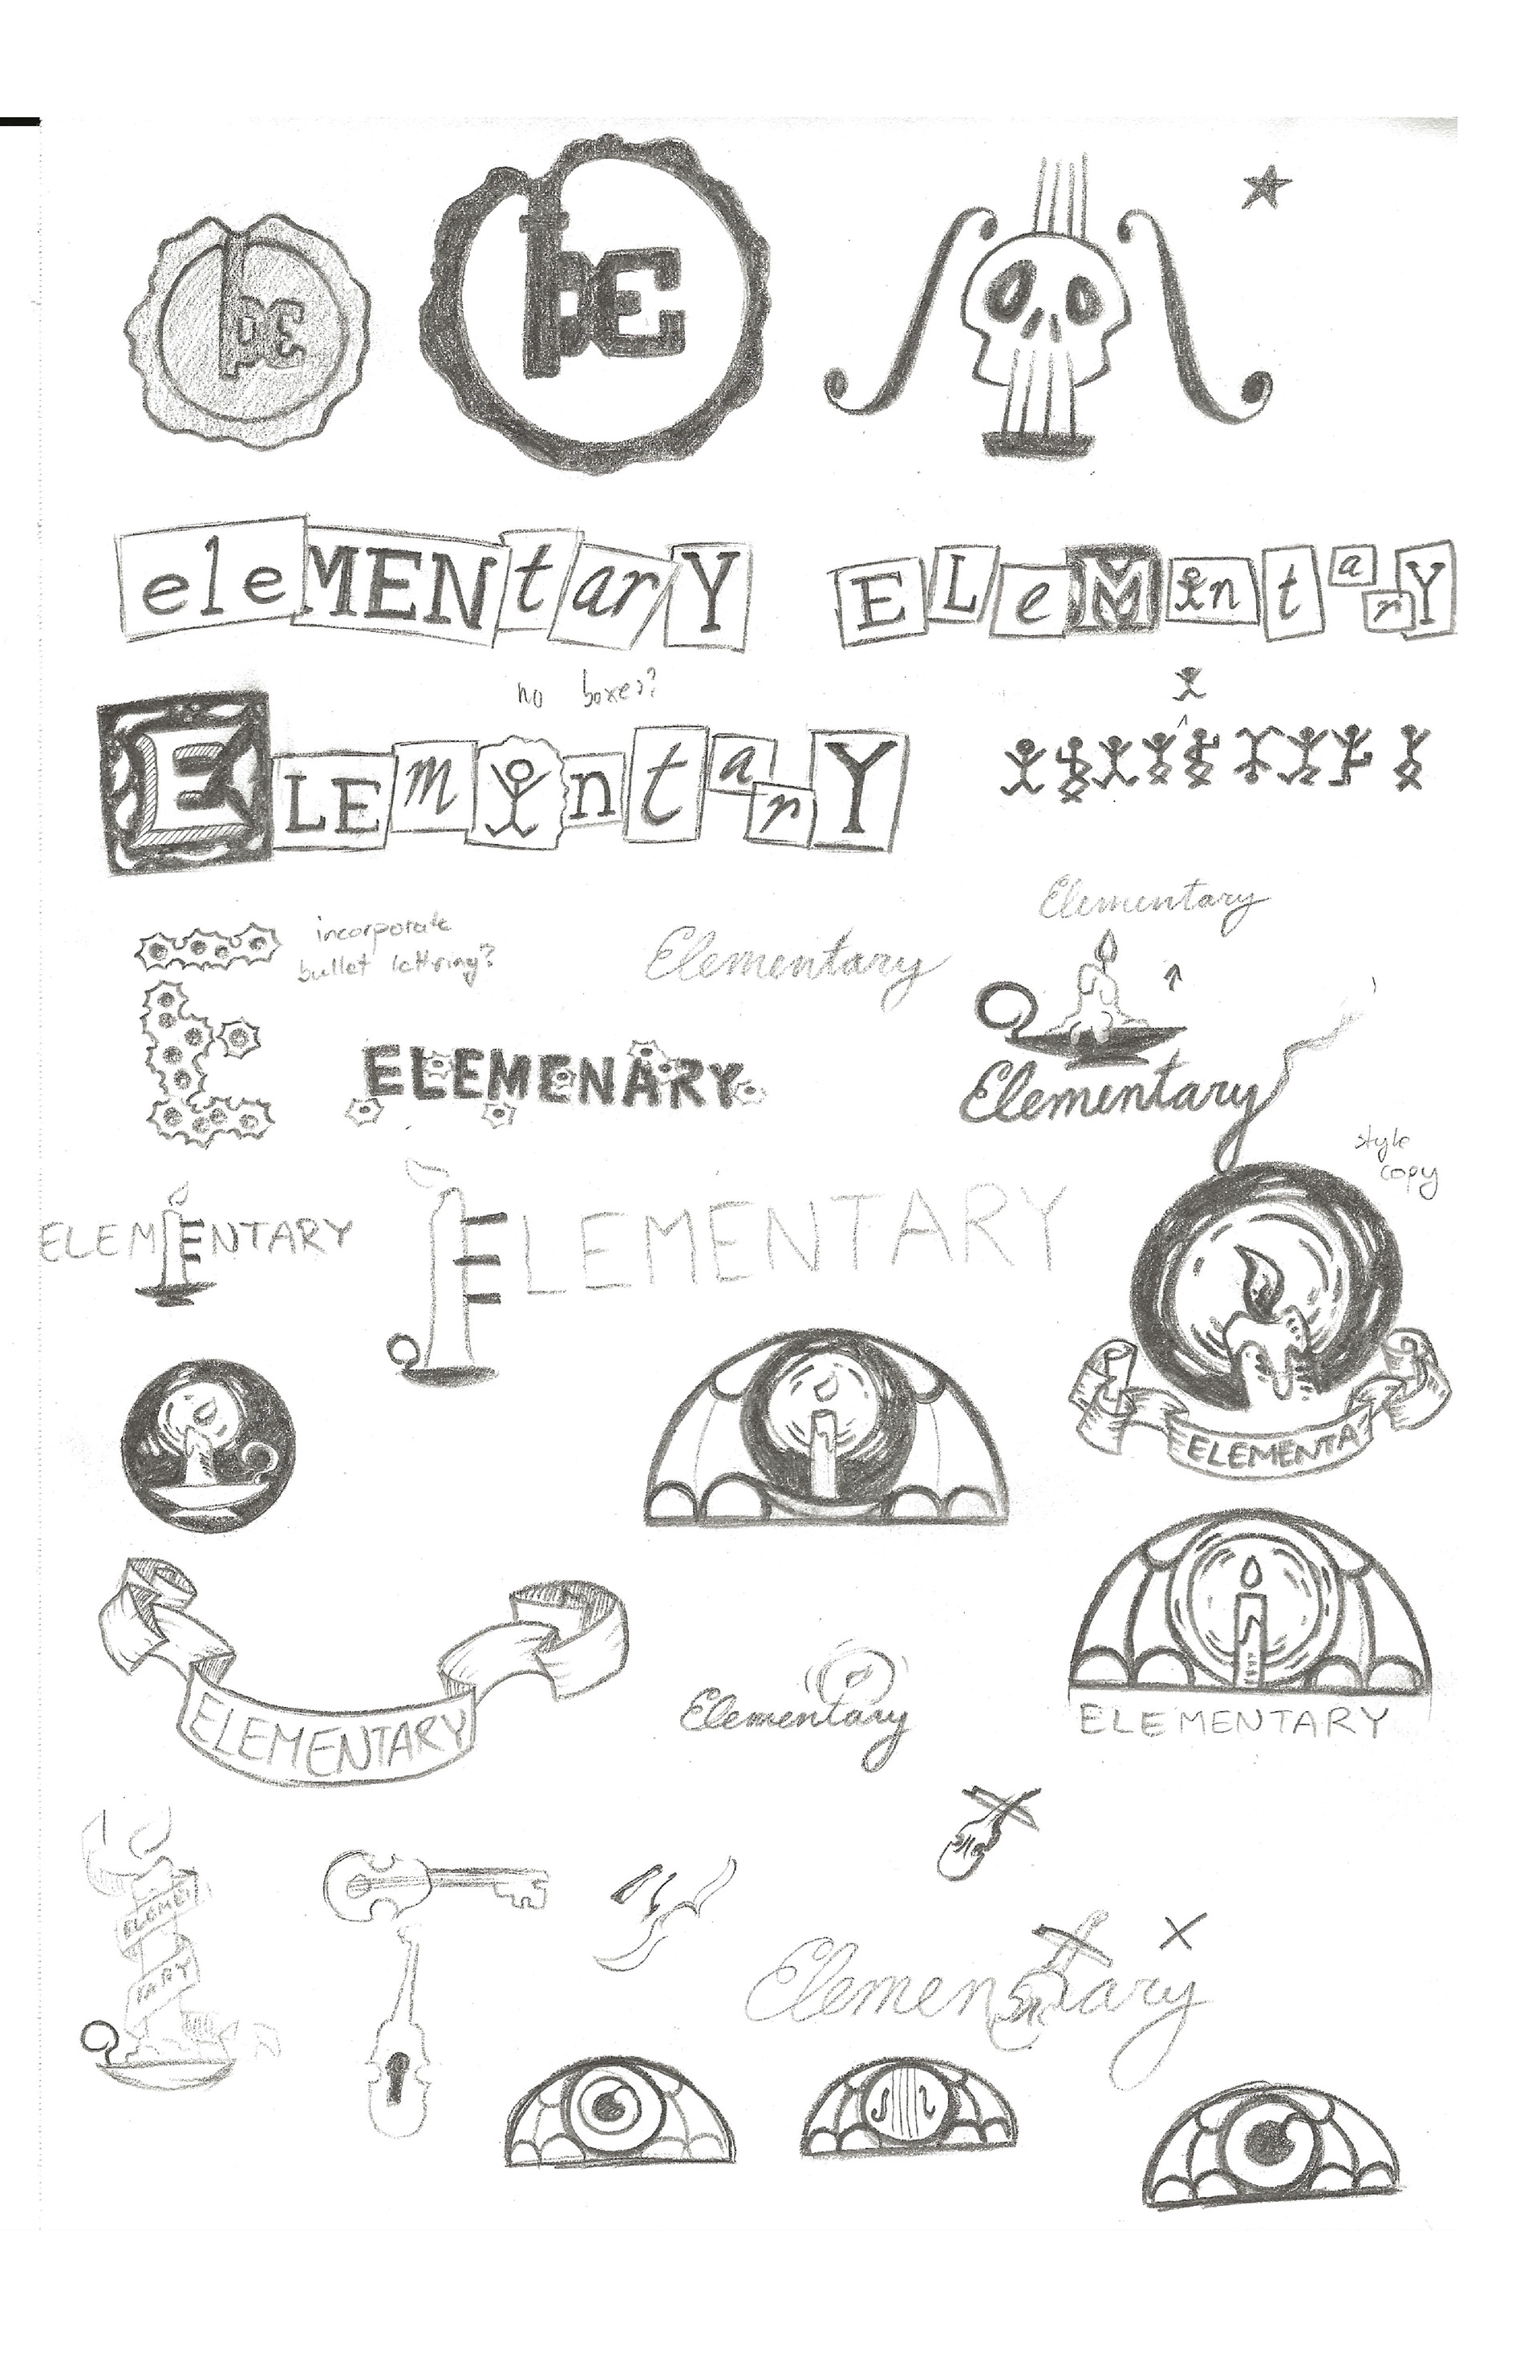 eleMENtarY
ELeMntarY
no boxes?
ELEmntarY
Elementary
E
incorporate
bullet lettring?
Elementary
ELEMENARY
Elementary
style
copy
ELEMENTARY
ELEMENTARY
ELEMENTA
ELEMENTARY
Elementary
ELEMENTARY
ELEMEN
TARY
Elementary